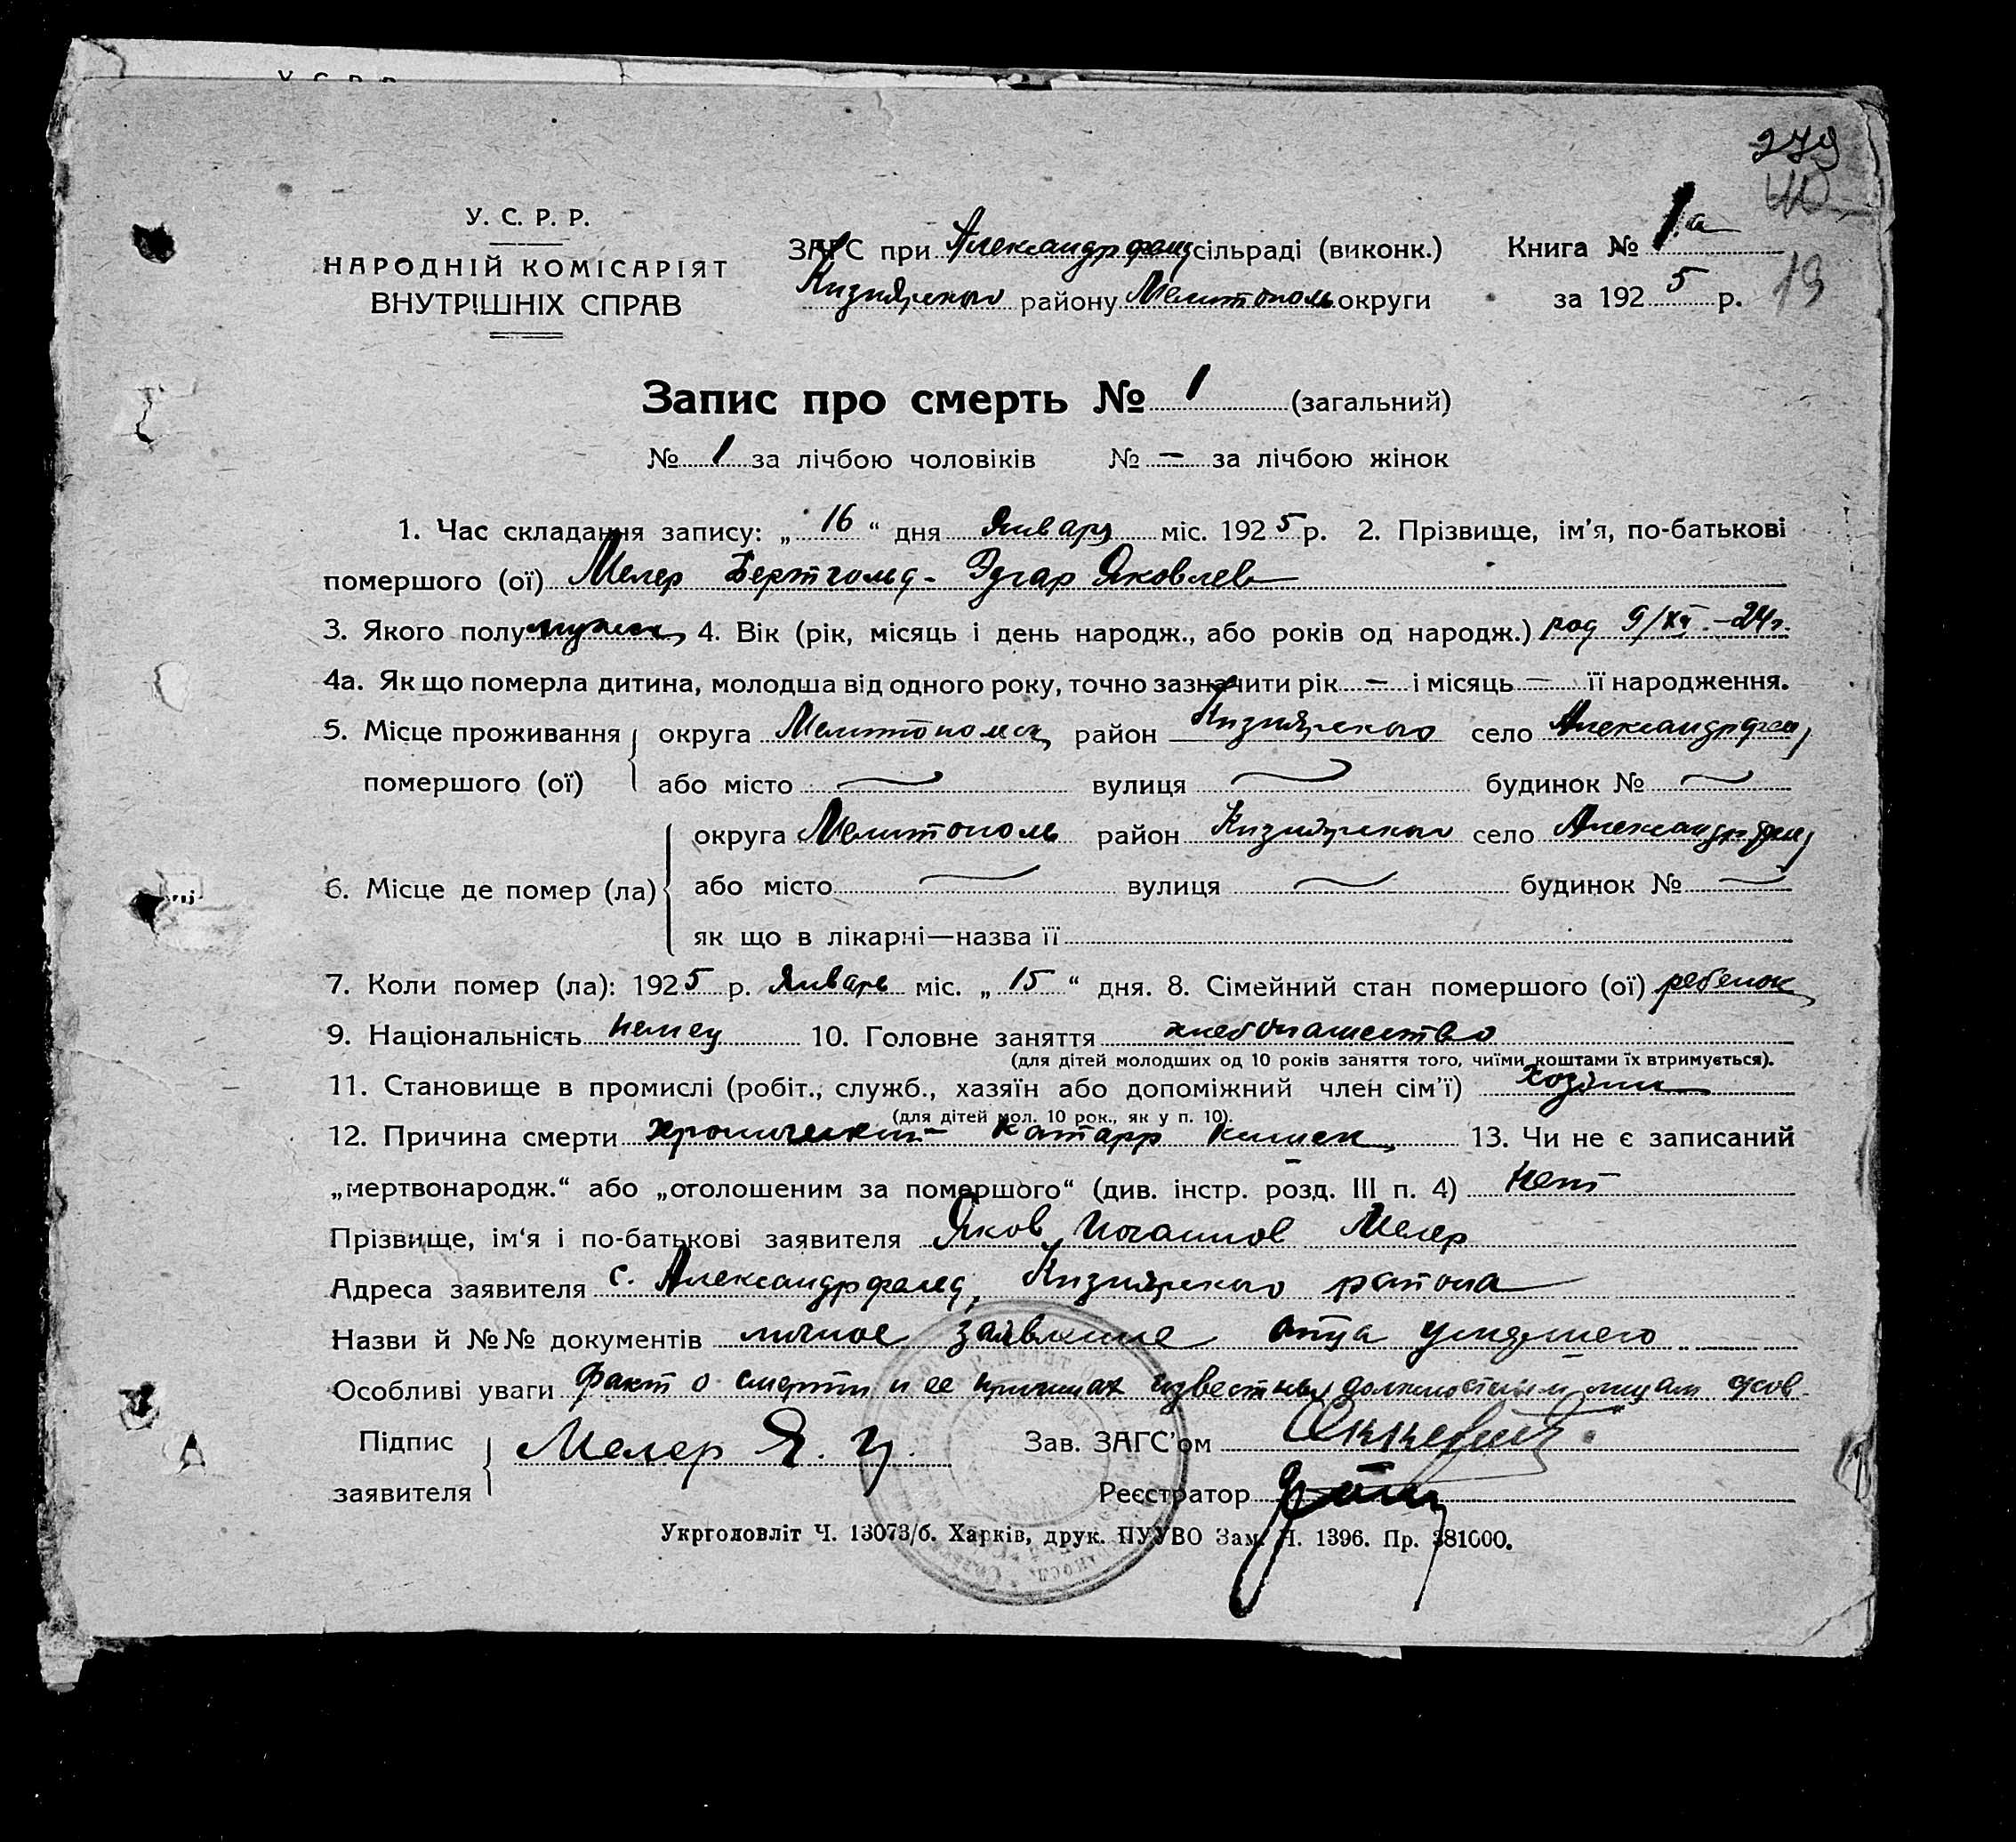 У. С. Р. Р.
279
У. С. Р. Р.
НАРОДНІЙ КОМІСАРІЯТ
ВНУТРІШНІХ СПРАВ
ЗАГС при Александрфельд сільраді (виконк.)
Кизиярского району Мелитополь округи
Книга № 1а
за 1925 р.
19
Запис про смерть № 1 (загальний)
№ 1 за лічбою чоловіків № — за лічбою жінок
1. Час складання запису: „ 16 “ дня Января міс. 1925 р. 2. Прізвище, ім'я, по-батькові
помершого (ої) Мелер Бертгольд-Эдгар Яковлев
3. Якого полу мужск, 4. Вік (рік, місяць і день народж., або років од народж.) род 9/XI-24г.
4а. Як що померла дитина, молодша від одного року, точно зазначити рік — і місяць — її народження.
5. Місце проживання помершого (ої) округа Мелитопольск, район Кизиярского село Александрфельд
або місто — вулиця — будинок № —
6. Місце де помер (ла) округа Мелитополь район Кизиярского село Александрфельд
або місто — вулиця — будинок № —
як що в лікарні—назва її
7. Коли помер (ла): 1925 р. Январь міс. „ 15 “ дня. 8. Сімейний стан помершого (ої) ребенок
9. Національність немец 10. Головне заняття хлебопашество
(для дітей молодших од 10 років заняття того, чиїми коштами їх втримується).
11. Становище в промислі (робіт., служб., хазяїн або допоміжний член сім'ї) хозяин
(для дітей мол. 10 рок., як у п. 10).
12. Причина смерти хронический катарр кишек, 13. Чи не є записаний
„мертвонародж.“ або „оголошеним за помершого“ (див. інстр. розд. III п. 4) нет
Прізвище, ім'я і по-батькові заявителя Яков Иоганнов Мелер
Адреса заявителя с. Александрфельд, Кизиярского района
Назви й №№ документів личное заявление отца умершего
Особливі уваги факт о смерти и ее причинах известны должностным лицам
Підпис заявителя Мелер Я. И.
Зав. ЗАГС'ом
Реєстратор
Укрголовліт Ч. 13073/б. Харків, друк. ПУУВО Зам. Ч. 1396. Пр. 381000.